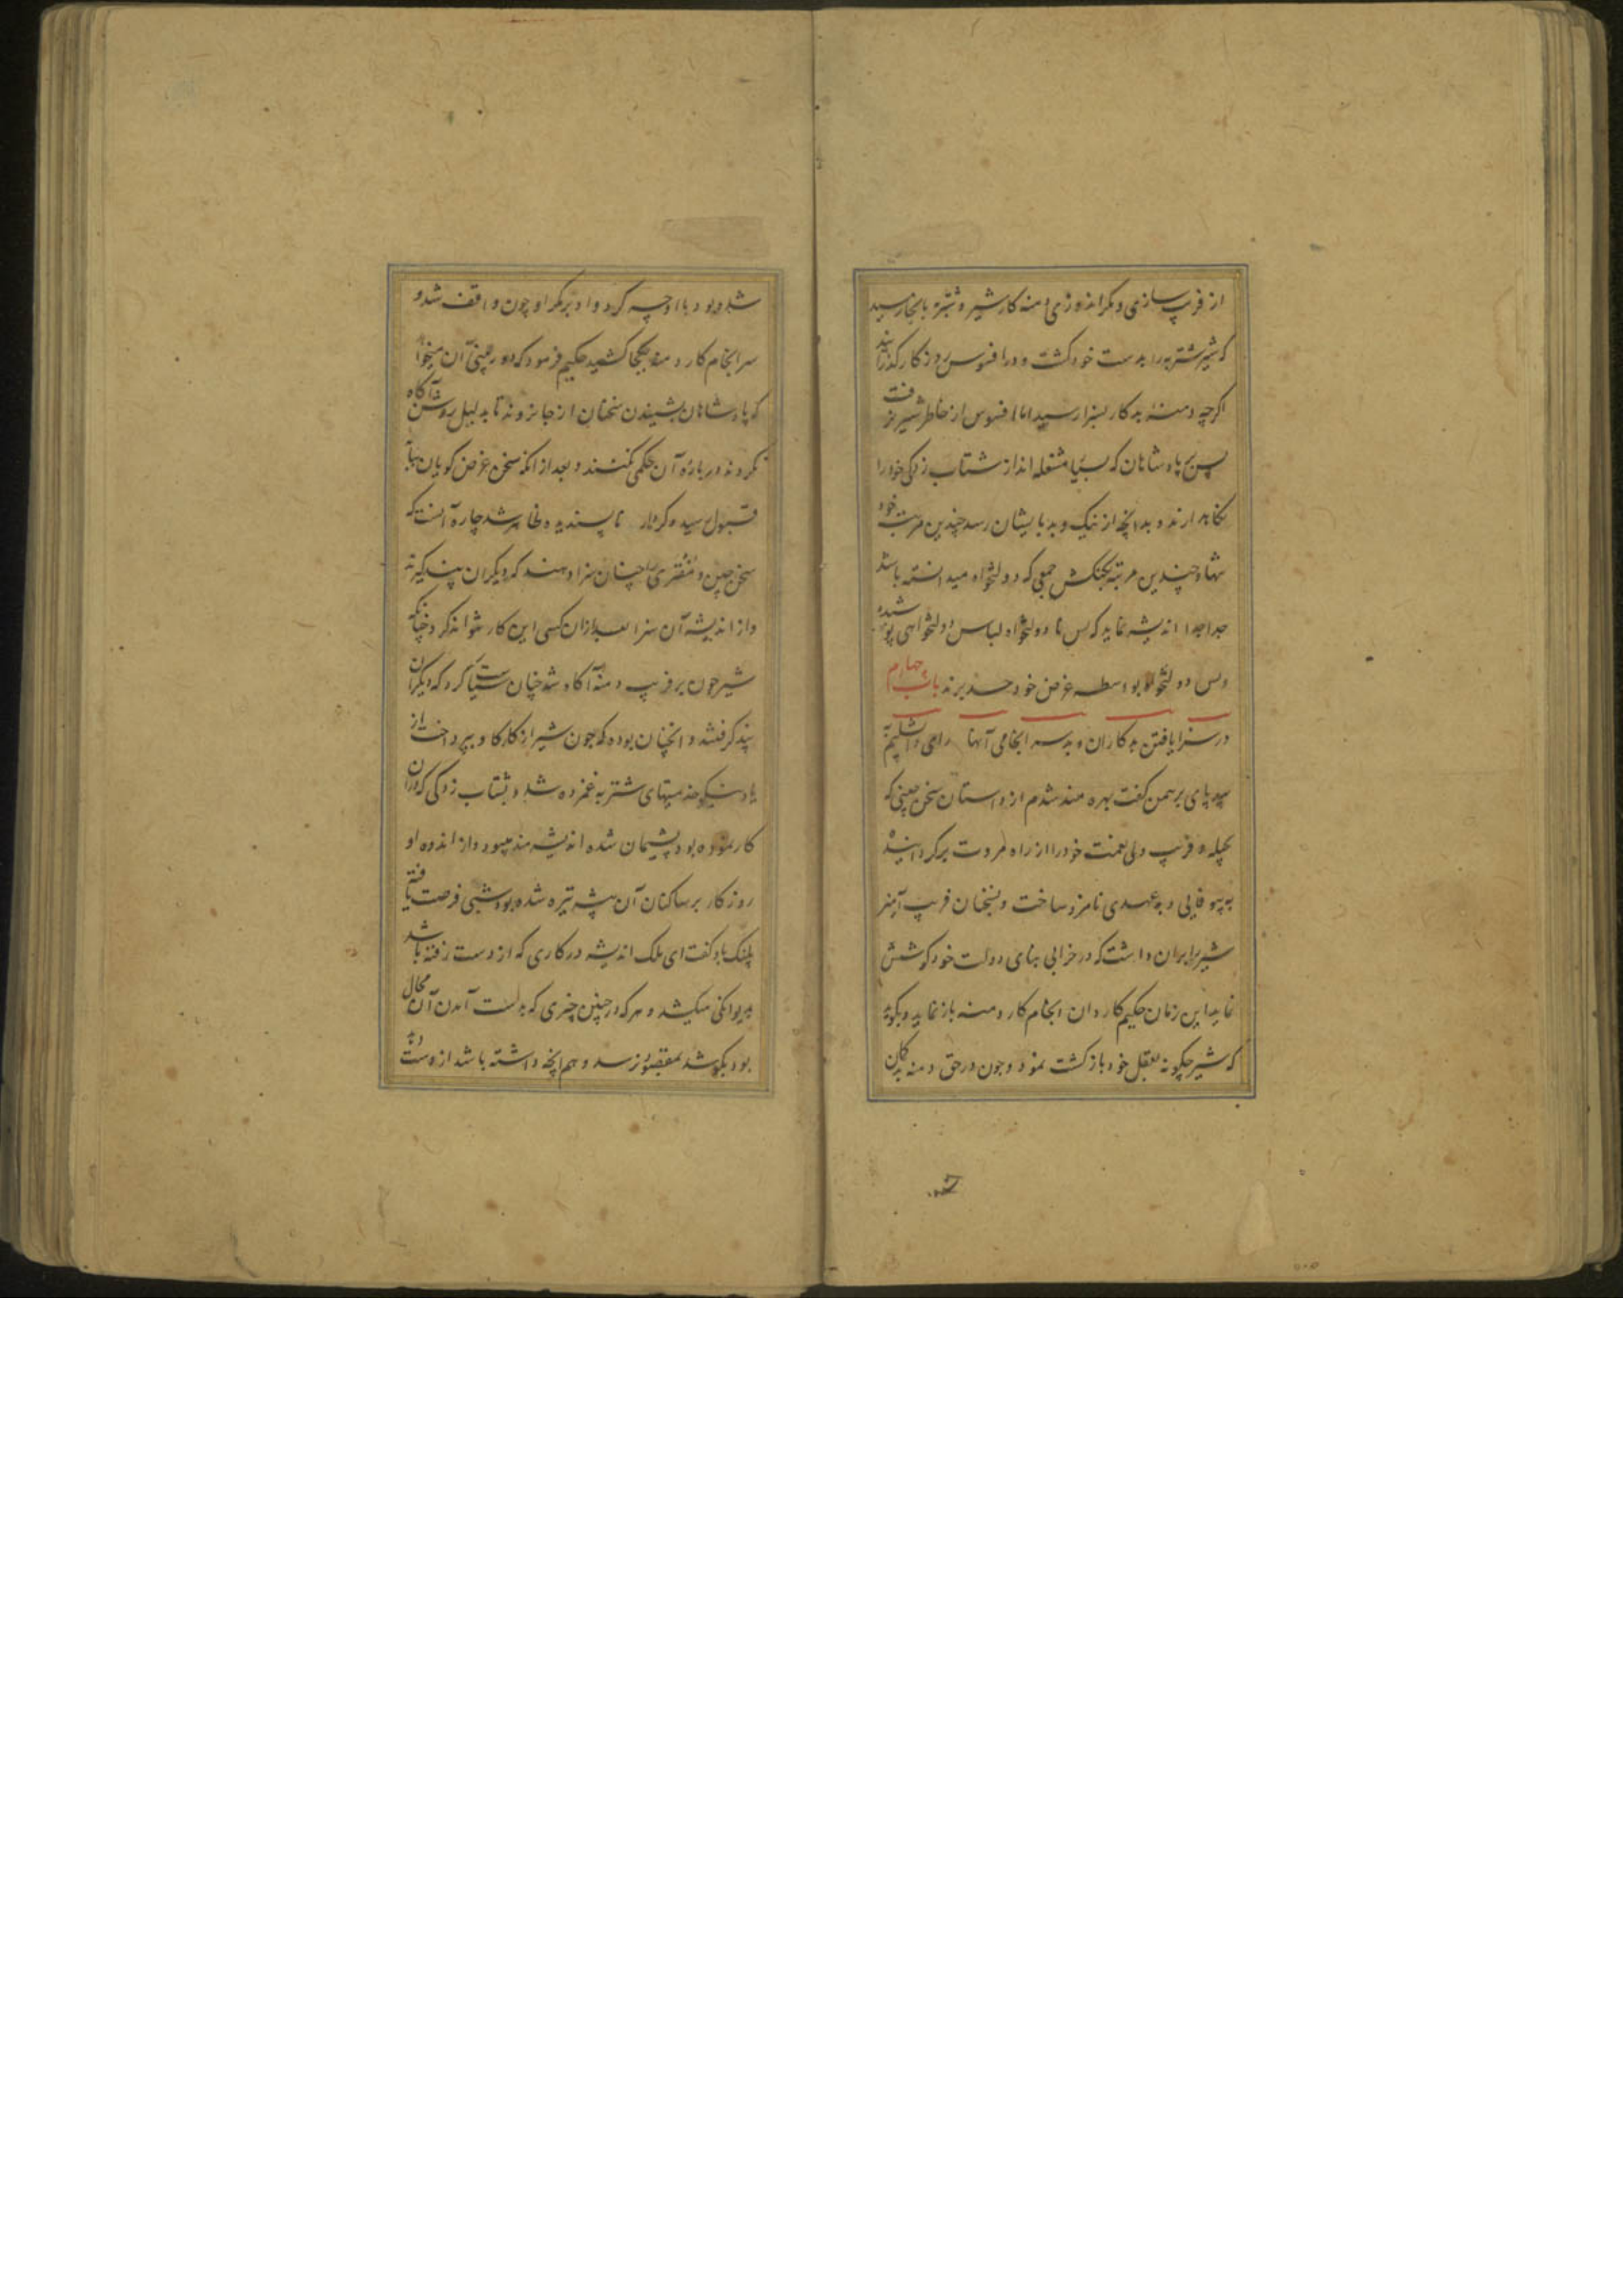 از فریب سازی و مکر اندوزی دمنه کار شیر و شتربه باینجا رسید
که شیر شتربه را بدست خود کشت و در افسوس روزگار گذراند
اگرچه دمنه بدکار بسزا رسید اما افسوس از خاطر شیر نرفت
پس پادشاهان که بسیار مشغله اند از شتاب زدگی خود را
نگاه دارند و بدانچه از نیک و بد بایشان رسد چندین مرتبه خود
تنها و چندین مرتبه بکنکش جمعی که دولتخواه میدانسته باشد
جدا جدا اندیشه نماید که بس نا دولتخواه لباس دولتخواهی پوشیده
و بس دولتخواه بواسطه غرض خود حسد برند باب چهارم
در سزا یافتن بدکاران و بد سرانجامی آنها رای دابشلیم به
بیدپای برهمن گفت بهره مند شدم از داستان سخن چینی که
بحیله و فریب ولی نعمت خود را از راه مروت برگردانیده
به بیوفایی و بدعهدی نامزد ساخت و بسخنان فریب آمیز
شیر را بران داشت که در خرابی بنای دولت خود کوشش
نماید این زمان حکیم کاردان انجام کار دمنه باز نماید و بگوید
که شیر چگونه بعقل خود بازگشت نمود و چون در حق دمنه بدگمان
شده بود با او چه کرد و او بر مکر او چون واقف شد و
سرانجام کار دمنه بکجا کشید حکیم فرمود که دوربینی آن میخواهد
که پادشاهان بشنیدن سخنان از جا نروند تا بدلیل روشن آگاه
نگردند درباره آن حکمی نکنند و بعد از آنکه سخن غرض گویان بپایه
قبول رسیده کردار ناپسندیده ظاهر شد چاره آنست که
سخن چین و مفتری را چنان سزا دهند که دیگران پند گیرند
و از اندیشه آن سزا بعد ازان کسی این کار نتواند کرد چنانکه
شیر چون بر فریب دمنه آگاه شد چنان سیاست کرد که دیگران
پند گرفتند و آنچنان بوده که چون شیر از کار گاو بپرداخت از
یاد نیکو خدمتیهای شتربه غمزده شد و بشتاب زدگی که دران
کار نموده بود پشیمان شده اندیشه مند میبود و از اندوه او
روزگار بر ساکنان آن بیشه تیره شده بود شبی فرصت یافته
پلنگ باو گفت ای ملک اندیشه در کاری که از دست رفته باشد
بدیوانگی میکشد و هر که در چنین چیزی که بدست آمدن آن محال
بود بکوشد بمقصود نرسد و هم آنچه داشته باشد از دست دهد